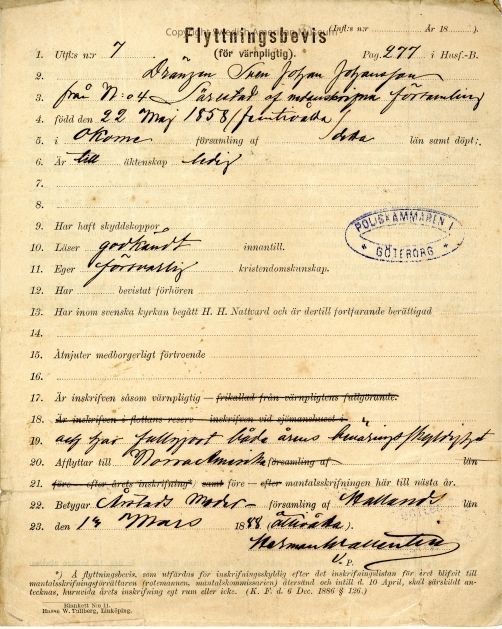 (Infl:s n:r År 18 ).
Flyttningsbevis
(för värnpligtig).
1. Utfl:s n:r 7 Pag. 277 i Husf.-B.
2. Drängen Sven Johan Johansson
3. från N:o 4 Årstad af församling
4. född den 22 Maj 1858 (femtiåtta)
5. i Okome församling af detta län samt döpt;
6. Är till äktenskap ledig
7.
8.
9. Har haft skyddskoppor
10. Läser godkändt innantill.
11. Eger försvarlig kristendomskunskap.
12. Har bevistat förhören
13. Har inom svenska kyrkan begått H. H. Nattvard och är dertill fortfarande berättigad
14.
15. Åtnjuter medborgerligt förtroende
16.
17. Är inskrifven såsom värnpligtig — frikallad från värnpligtens fullgörande.
18. Är inskrifven i flottans reserv — inskrifven vid sjömanshuset i
19. och har fullgjort båda årens bevärings
20. Afflyttar till Norra Amerika församling af län
21. före — efter årets inskrifning*) samt före — efter mantalsskrifningen här till nästa år.
22. Betygar Årstads församling af Hallands län
23. den 1 Mars 1888 (åttiåtta).
V. P.
POLISKAMMAREN I
GÖTEBORG
*) Å flyttningsbevis, som utfärdas för inskrifningsskyldig efter det inskrifningslistan för året blifvit till
mantalsskrifningsförrättaren (rotemannen, mantalskommissarien) återsänd och intill d. 10 April, skal särskildt an-
tecknas, huruvida årets inskrifning egt rum eller icke. (K. F. d. 6 Dec. 1886 § 136.)
Blankett N:o 11.
Hanns W. Tullberg, Linköping.